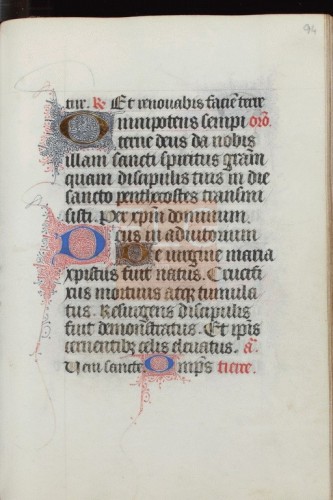 94
tur. R. Et renovabis faciē terre
Omnipotens sempi orō.
terne deus da nobis
illam sancti spiritus grām
quam discipulis tuis in die
sancto penthecostes transmi
sisti. Per xp̄m dominum.
Deus in adiutorium
De virgine maria
xpristus fuit natus. Crucifi
xus mortuus atqz tumula
tus. Resurgens discipulis
fuit demonstratus. Et ip̄is
cernentibz celis elevatus. a.
Veni sancte. Omp̄s tierce.